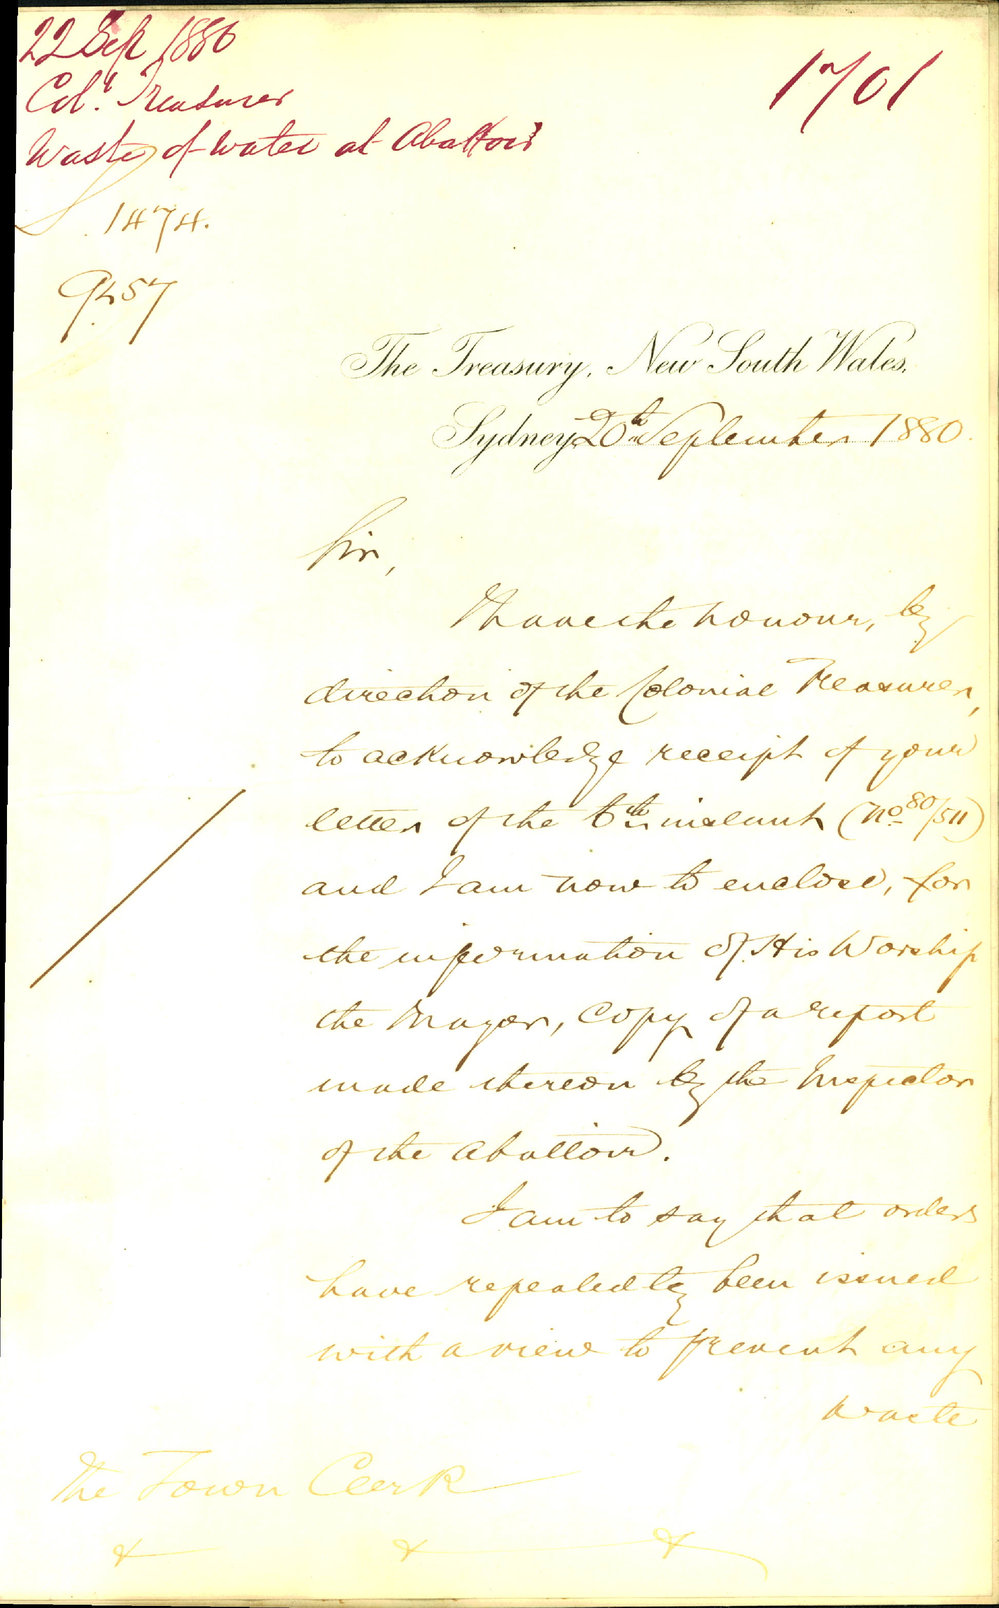 22 Sep 1880
Col.l Treasurer
Waste of water at Abattoir
1701
1474.
9457
The Treasury, New South Wales,
Sydney 20th September 1880.
Sir,
I have the honour, by
direction of the Colonial Treasurer,
to acknowledge receipt of your
letter of the 6th instant (No 80/511)
and I am now to enclose, for
the information of His Worship
the Mayor, Copy of a report
made thereon by the Inspector
of the Abattoir.
I am to say that orders
have repeatedly been issued
with a view to prevent any
waste
The Town Clerk